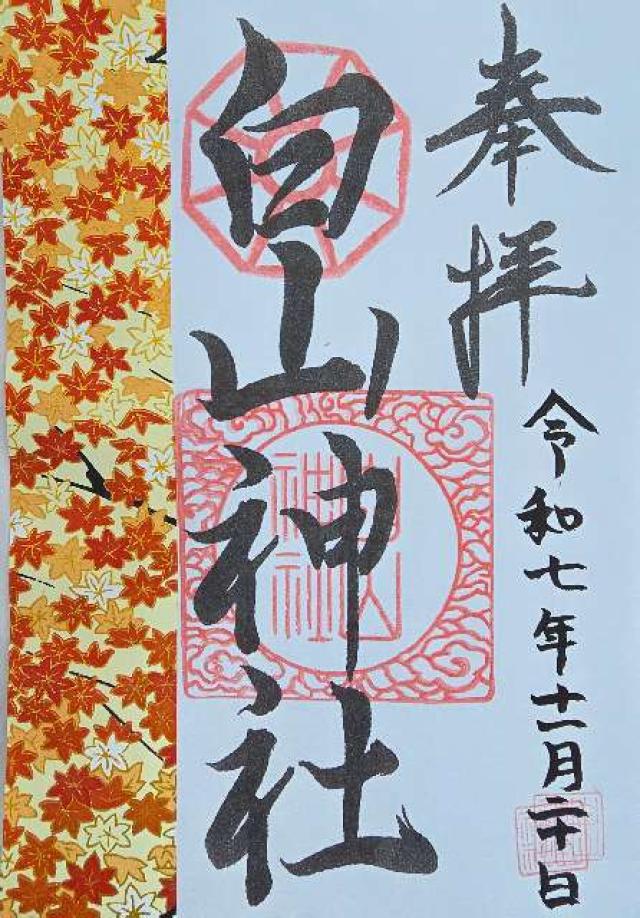 奉拝
令和七年十一月二十日
白山神社
白山神社